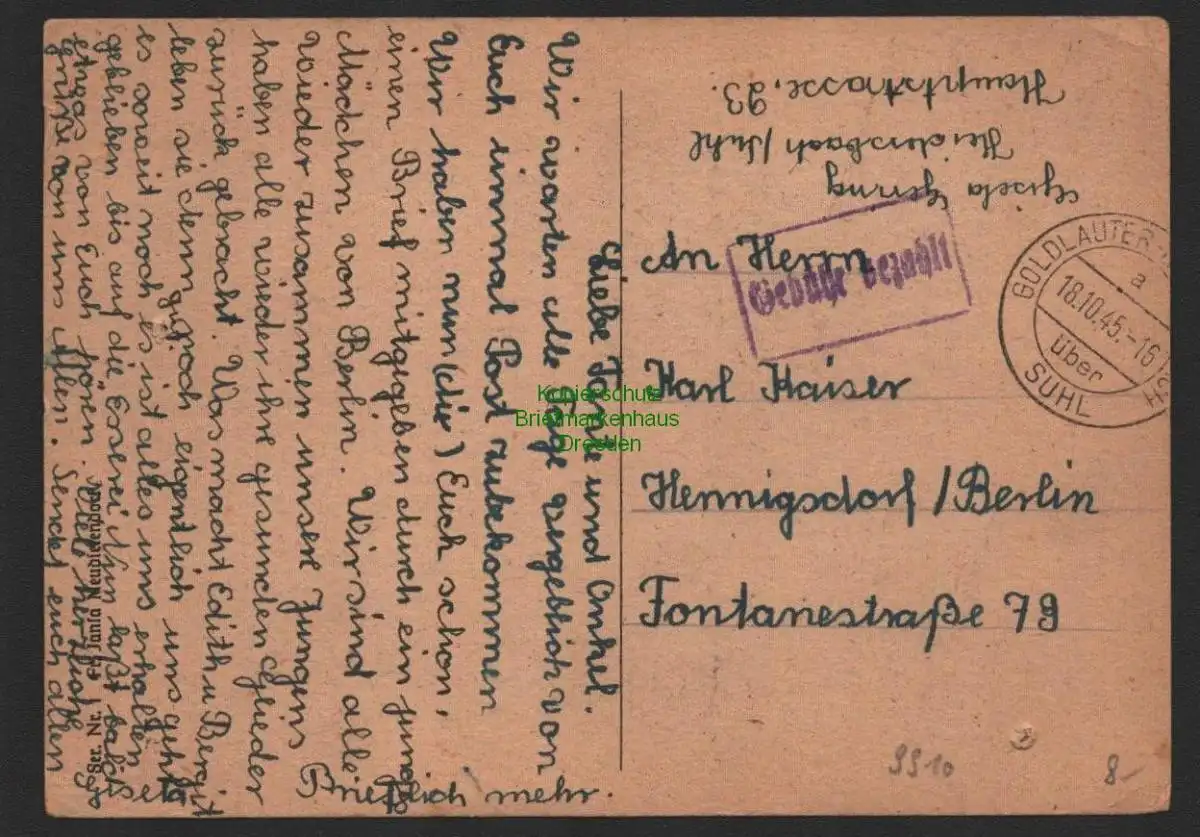 Liebe Tante und Onkel.
Wir warten alle Tage vergeblich von
Euch einmal Post zubekommen
Wir haben nun (die) Euch schon,
einen Brief mitgegeben durch ein junges
Mädchen von Berlin. Wir sind alle
wieder zusammen unsere Jungens
haben alle wieder ihre gesunden Glieder
zurück gebracht. Was macht Edith u Bergit
leben sie denn noch eigentlich uns geht
es soweit noch es ist alles uns erhalten
geblieben bis auf die Esserei. Nun laßt bald
etwas von Euch hören. herzliche
Grüße von uns allen. Sendet euch allen
Brieflich mehr.
Ser. Nr. Neudietendorf
Gisela Gering
Heidersbach / Suhl
Hauptstrasse, 93.
Gebühr bezahlt
GOLDLAUTER
a
18.10.45.-16
über
SUHL
An Herrn
Karl Kaiser
Hennigsdorf / Berlin
Fontanestraße 79
Kopierschutz
Briefmarkenhaus
Dresden
9910
8-